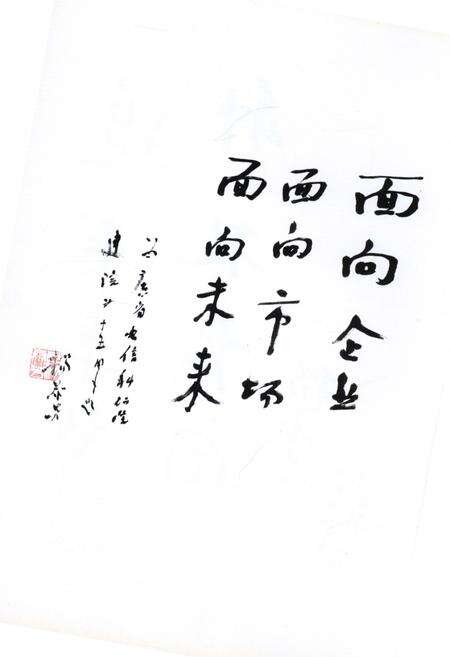 面向企业
面向市场
面向未来
为广省电信科研院
建院三十五周年题